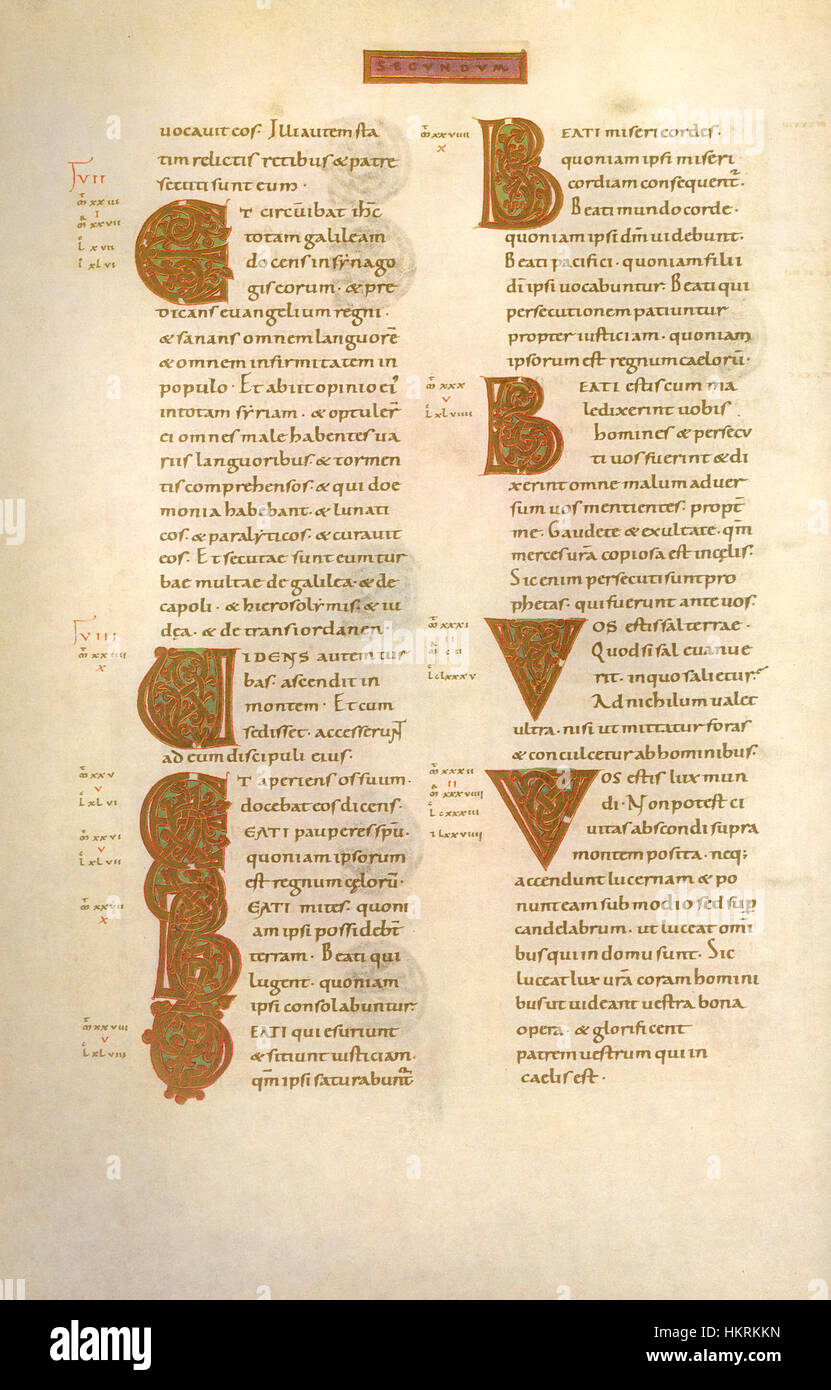 SECUNDUM
uocauit eos· Illi autem sta
tim relictis retibus & patre
secuti sunt eum·
ET circūibat ihc̄
totam galileam
docens in synago
gis eorum· & pre
dicans euangelium regni·
& sanans omnem languorē
& omnem infirmitatem in
populo· Et abiit opinio ei'
in totam syriam· & optuler̄
ei omnes male habentes ua
riis languoribus· & tormen
tis comprehensos· & qui doe
monia habebant· & lunati
cos· & paralyticos· & curauit
eos· Et secutae sunt eum tur
bae multae de galilea· & de
capoli· & hierosolymis· & iu
dęa· & de trans iordanen·
UIDENS autem tur
bas· ascendit in
montem· Et cum
sedisset· accesserunt
ad eum discipuli eius·
ET aperiens os suum·
docebat eos dicens·
BEATI pauperes spū·
quoniam ipsorum
est regnum cęlorū·
BEATI mites· quoni
am ipsi possidebt̄
terram· Beati qui
lugent· quoniam
ipsi consolabuntur·
BEATI qui esuriunt
& sitiunt iusticiam·
qm̄ ipsi saturabunt᷑
BEATI misericordes·
quoniam ipsi miseri
cordiam consequent᷑·
Beati mundo corde·
quoniam ipsi dm̄ uidebunt·
Beati pacifici· quoniam filii
dī ipsi uocabuntur· Beati qui
persecutionem patiuntur
propter iusticiam· quoniam
ipsorum est regnum caelorū·
BEATI estis cum ma
ledixerint uobis
homines & persecu
ti uos fuerint & di
xerint omne malum aduer
sum uos mentientes· propt̄
me· Gaudete & exultate· qm̄
merces ur̄a copiosa est in cęlis·
Sic enim persecuti sunt pro
phetas· qui fuerunt ante uos·
VOS estis sal terrae·
Quod si sal euanue
rit· in quo salietur·
Ad nichilum ualet
ultra· nisi ut mittatur foras
& conculcetur ab hominibus·
VOS estis lux mun
di· Non potest ci
uitas abscondi supra
montem posita· neq;
accendunt lucernam & po
nunt eam sub modio sed sup̄
candelabrum· ut luceat om̄i
bus qui in domu sunt· Sic
luceat lux ur̄a coram homini
bus ut uideant uestra bona
opera· & glorificent
patrem uestrum qui in
caelis est·
alamy
Image ID: HKRKKN
www.alamy.com